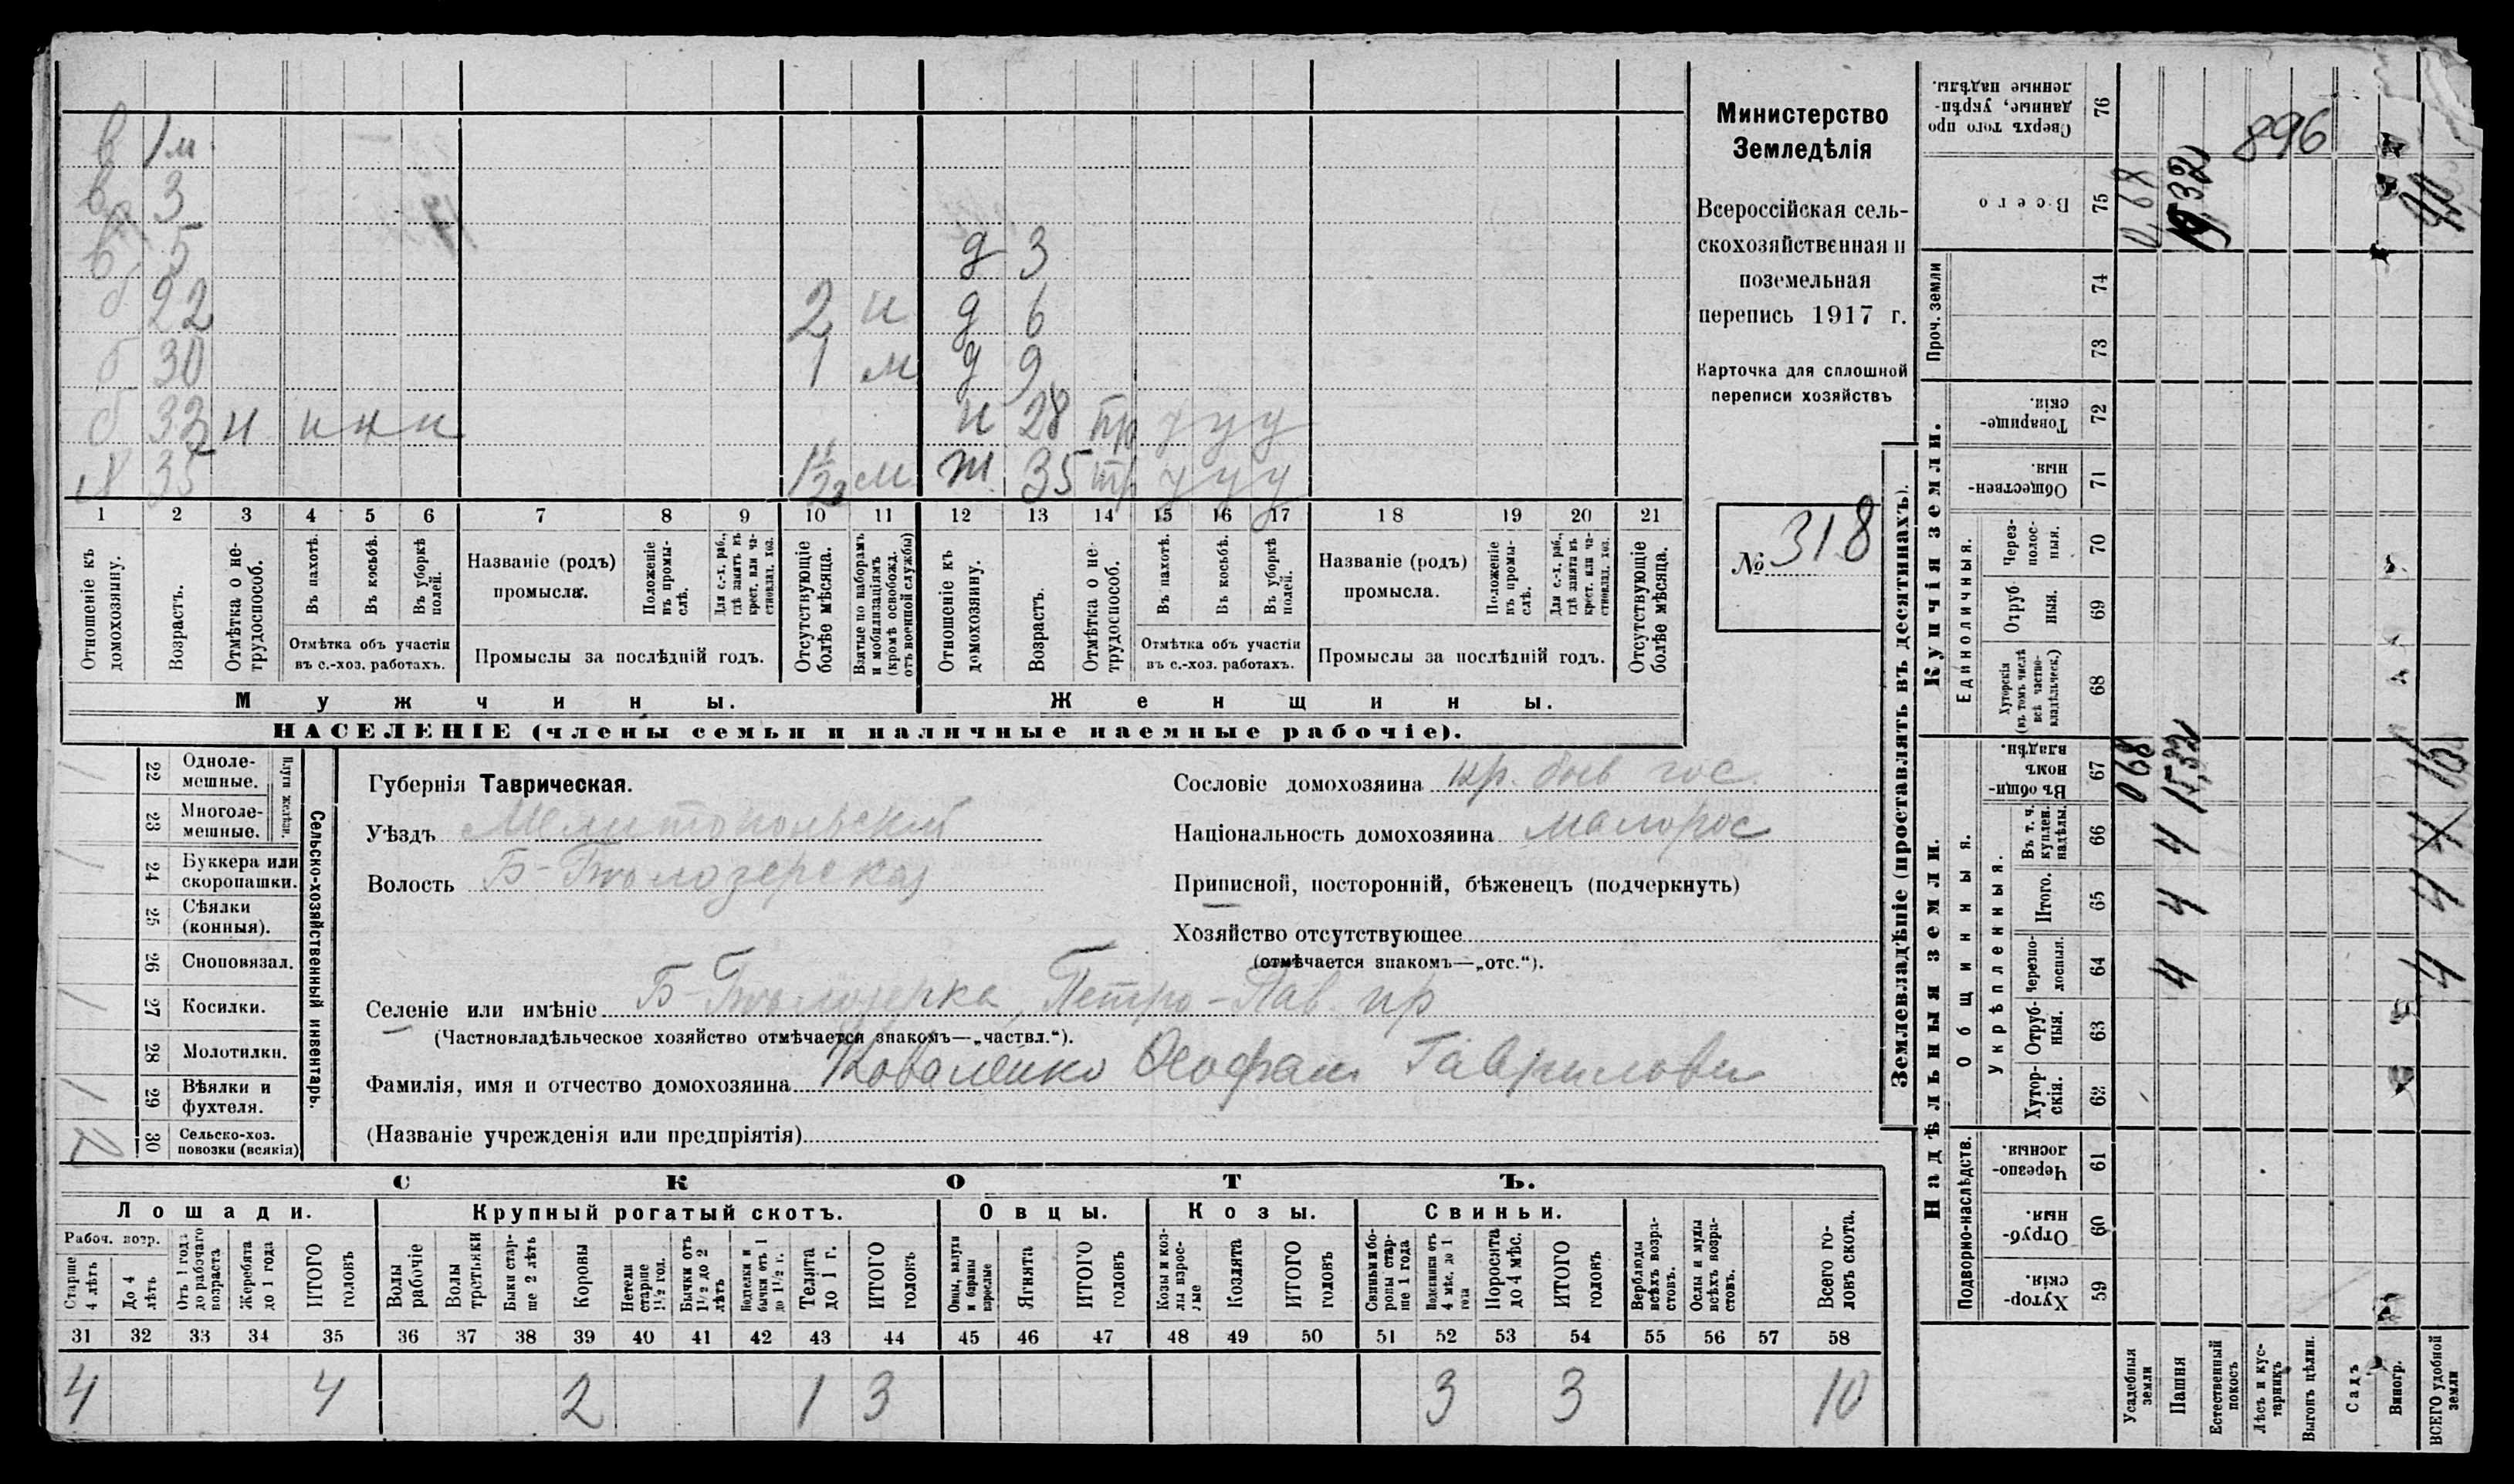 в 1 м
в 3
в 5
б 22 2 н
б 30 1 м
б 32 н н н н
х 35 1½ м
д 3
д 6
д 9
н 28 тр у у у
ж 35 тр у у у
1 2 3 4 5 6 7 8 9 10 11 12 13 14 15 16 17 18 19 20 21
Отношеніе къ домохозяину.
Возрастъ.
Отмѣтка о нетрудоспособ.
Въ пахотѣ.
Въ косьбѣ.
Въ уборкѣ полей.
Отмѣтка объ участіи въ с.-хоз. работахъ.
Названіе (родъ) промысла.
Положеніе въ промыслѣ.
Для с.-х. раб., гдѣ занятъ въ крест. или частновлад. хоз.
Промыслы за послѣдній годъ.
Отсутствующіе болѣе мѣсяца.
Взятые по наборамъ и мобилизаціямъ (кромѣ освобожд. отъ военной службы)
Отношеніе къ домохозяину.
Возрастъ.
Отмѣтка о нетрудоспособ.
Въ пахотѣ.
Въ косьбѣ.
Въ уборкѣ полей.
Отмѣтка объ участіи въ с.-хоз. работахъ.
Названіе (родъ) промысла.
Положеніе въ промыслѣ.
Для с.-х. раб., гдѣ занята въ крест. или частновлад. хоз.
Промыслы за послѣдній годъ.
Отсутствующіе болѣе мѣсяца.
Мужчины.
Женщины.
НАСЕЛЕНІЕ (члены семьи и наличные наемные рабочіе).
Министерство
Земледѣлія
Всероссійская сель-
скохозяйственная и
поземельная
перепись 1917 г.
Карточка для сплошной
переписи хозяйствъ
№ 318
22 Одноле-мешные. 1
23 Многоле-мешные.
Плуги желѣзн.
24 Буккера или скоропашки. 1
25 Сѣялки (конныя).
26 Сноповязал.
27 Косилки. 1
28 Молотилки.
29 Вѣялки и фухтеля. 1
30 Сельско-хоз. повозки (всякія) 2
Сельско-хозяйственный инвентарь.
Губернія Таврическая.
Уѣздъ Мелитопольскій
Волость Б-Бѣлозерская
Сословіе домохозяина кр. быв гос.
Національность домохозяина малорос
Приписной, посторонній, бѣженецъ (подчеркнуть)
Хозяйство отсутствующее
(отмѣчается знакомъ—„отс.“).
Селеніе или имѣніе Б-Бѣлозерка, Петро-Пав пр
(Частновладѣльческое хозяйство отмѣчается знакомъ—„частвл.“).
Фамилія, имя и отчество домохозяина Коваленко Феофан Гаврилови
(Названіе учрежденія или предпріятія)
СКОТЪ.
Лошади. Крупный рогатый скотъ. Овцы. Козы. Свиньи.
Рабоч. возр.
Старше 4 лѣтъ
До 4 лѣтъ
Отъ 1 года до рабочаго возраста
Жеребята до 1 года
ИТОГО головъ
Волы рабочіе
Волы третьяки
Быки старше 2 лѣтъ
Коровы
Нетели старше 1½ год.
Бычки отъ 1½ до 2 лѣтъ
Телки и бычки отъ 1 до 1½ г.
Телята до 1 г.
ИТОГО головъ
Овцы, валухи и бараны взрослые
Ягнята
ИТОГО головъ
Козы и козлы взрослые
Козлята
ИТОГО головъ
Свиньи боровы старше 1 года
Подсвинки отъ 4 мѣс. до 1 года
Поросята до 4 мѣс.
ИТОГО головъ
Верблюды всѣхъ возрастовъ.
Ослы и мулы всѣхъ возрастовъ.
Всего головъ скота.
31 32 33 34 35 36 37 38 39 40 41 42 43 44 45 46 47 48 49 50 51 52 53 54 55 56 57 58
4 4 2 1 3 3 3 10
Землевладѣніе (проставлять въ десятинахъ).
Сверхъ того проданные, укрѣпленные надѣлы. 76 896
Всего 75 0,68
Проч. земли 74 73
Купчія земли.
Товарищескія. 72
Общественныя. 71
Единоличныя.
Черезполосныя. 70
Отрубныя. 69
Хуторскія (въ томъ числѣ всѣ частновладѣльческ.) 68
Надѣльныя земли.
Общинныя.
Въ общиномъ владѣн. 67 068 15,32 16
Укрѣпленныя.
Въ т. ч. куплен. надѣлы. 66 4 4
Итого. 65 4 4
Черезполосныя. 64 4 4
Отрубныя. 63
Хуторскія. 62
Подворно-наслѣдств.
Черезполосныя. 61
Отрубныя. 60
Хуторскія. 59
Усадебныя земли
Пашня
Естественный покосъ
Лѣсъ и кустарникъ
Выгонъ цѣлин.
Садъ
Виногр.
ВСЕГО удобной земли